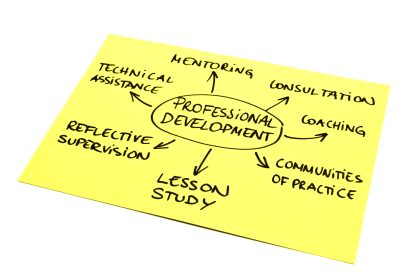 MENTORING
TECHNICAL
ASSISTANCE
CONSULTATION
PROFESSIONAL
DEVELOPMENT
COACHING
REFLECTIVE
SUPERVISION
COMMUNITIES
OF PRACTICE
LESSON
STUDY